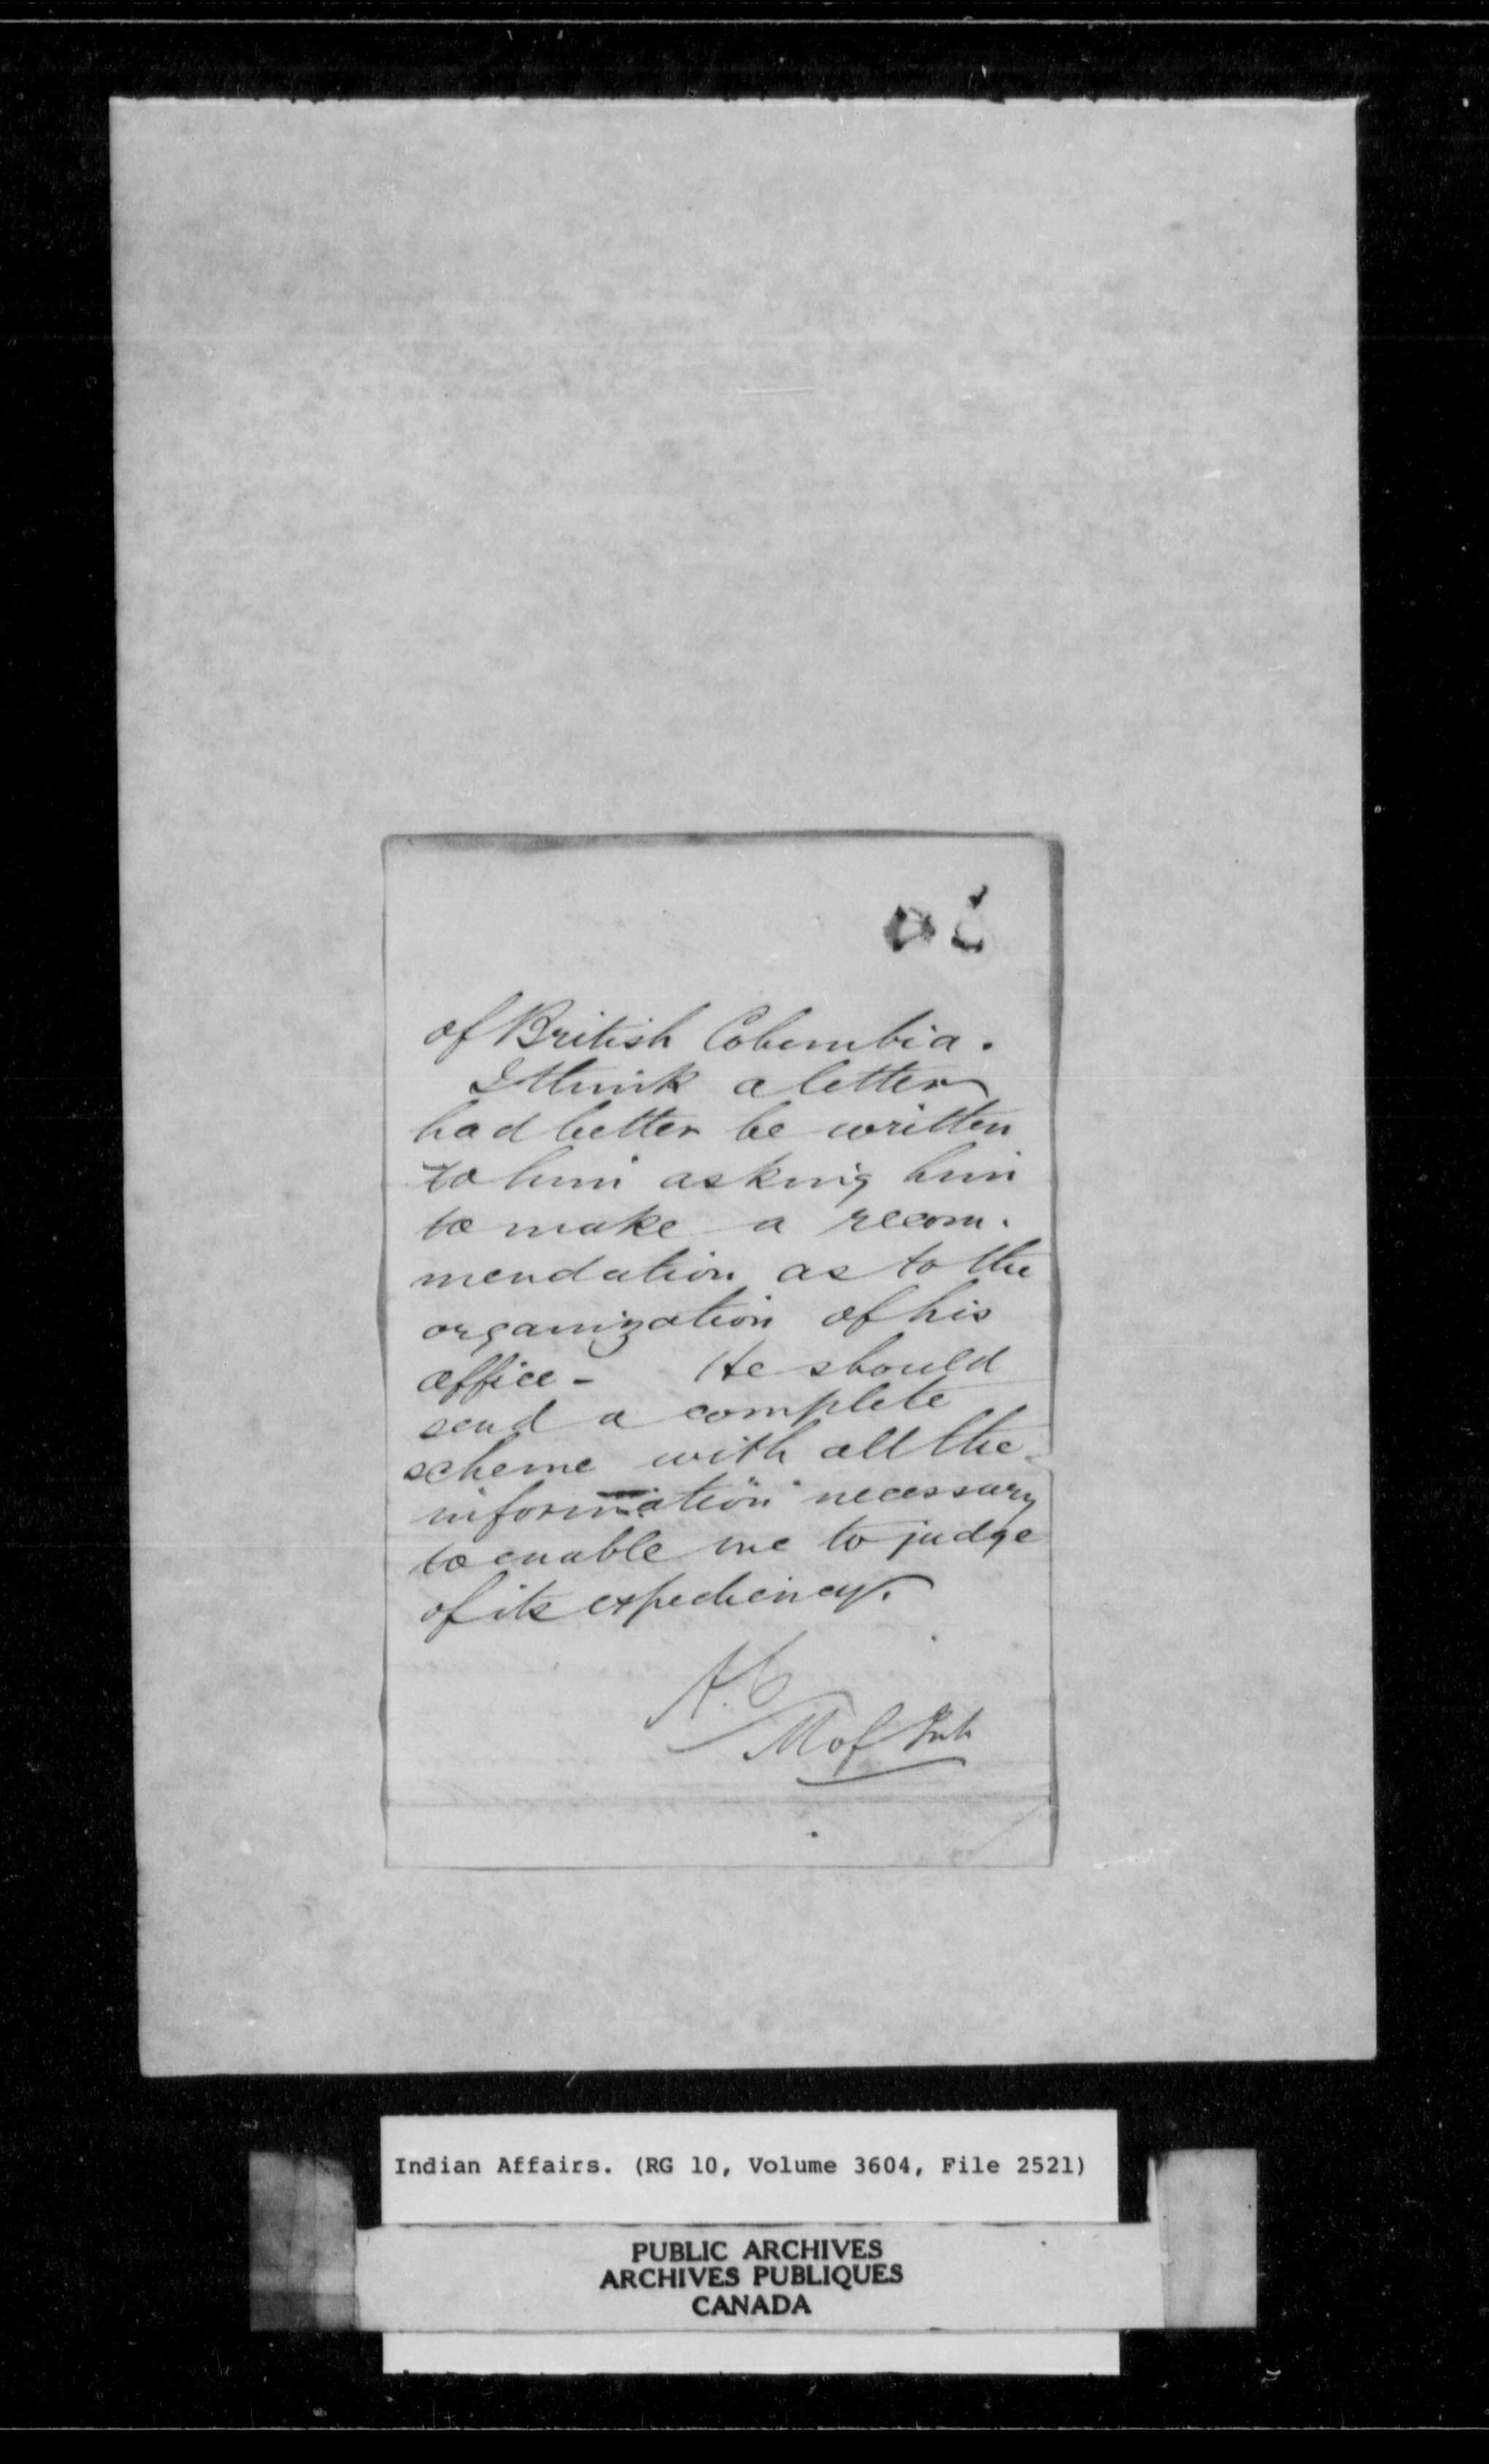 of British Columbia.
I think a letter
had better be written
to him asking him
to make a recom.
mendation as to the
organization of his
office - He should
send a complete
scheme with all the
information necessary
to enable me to judge
of its expediency.
A.C
M of Int
Indian Affairs. (RG 10, Volume 3604, File 2521)
PUBLIC ARCHIVES
ARCHIVES PUBLIQUES
CANADA